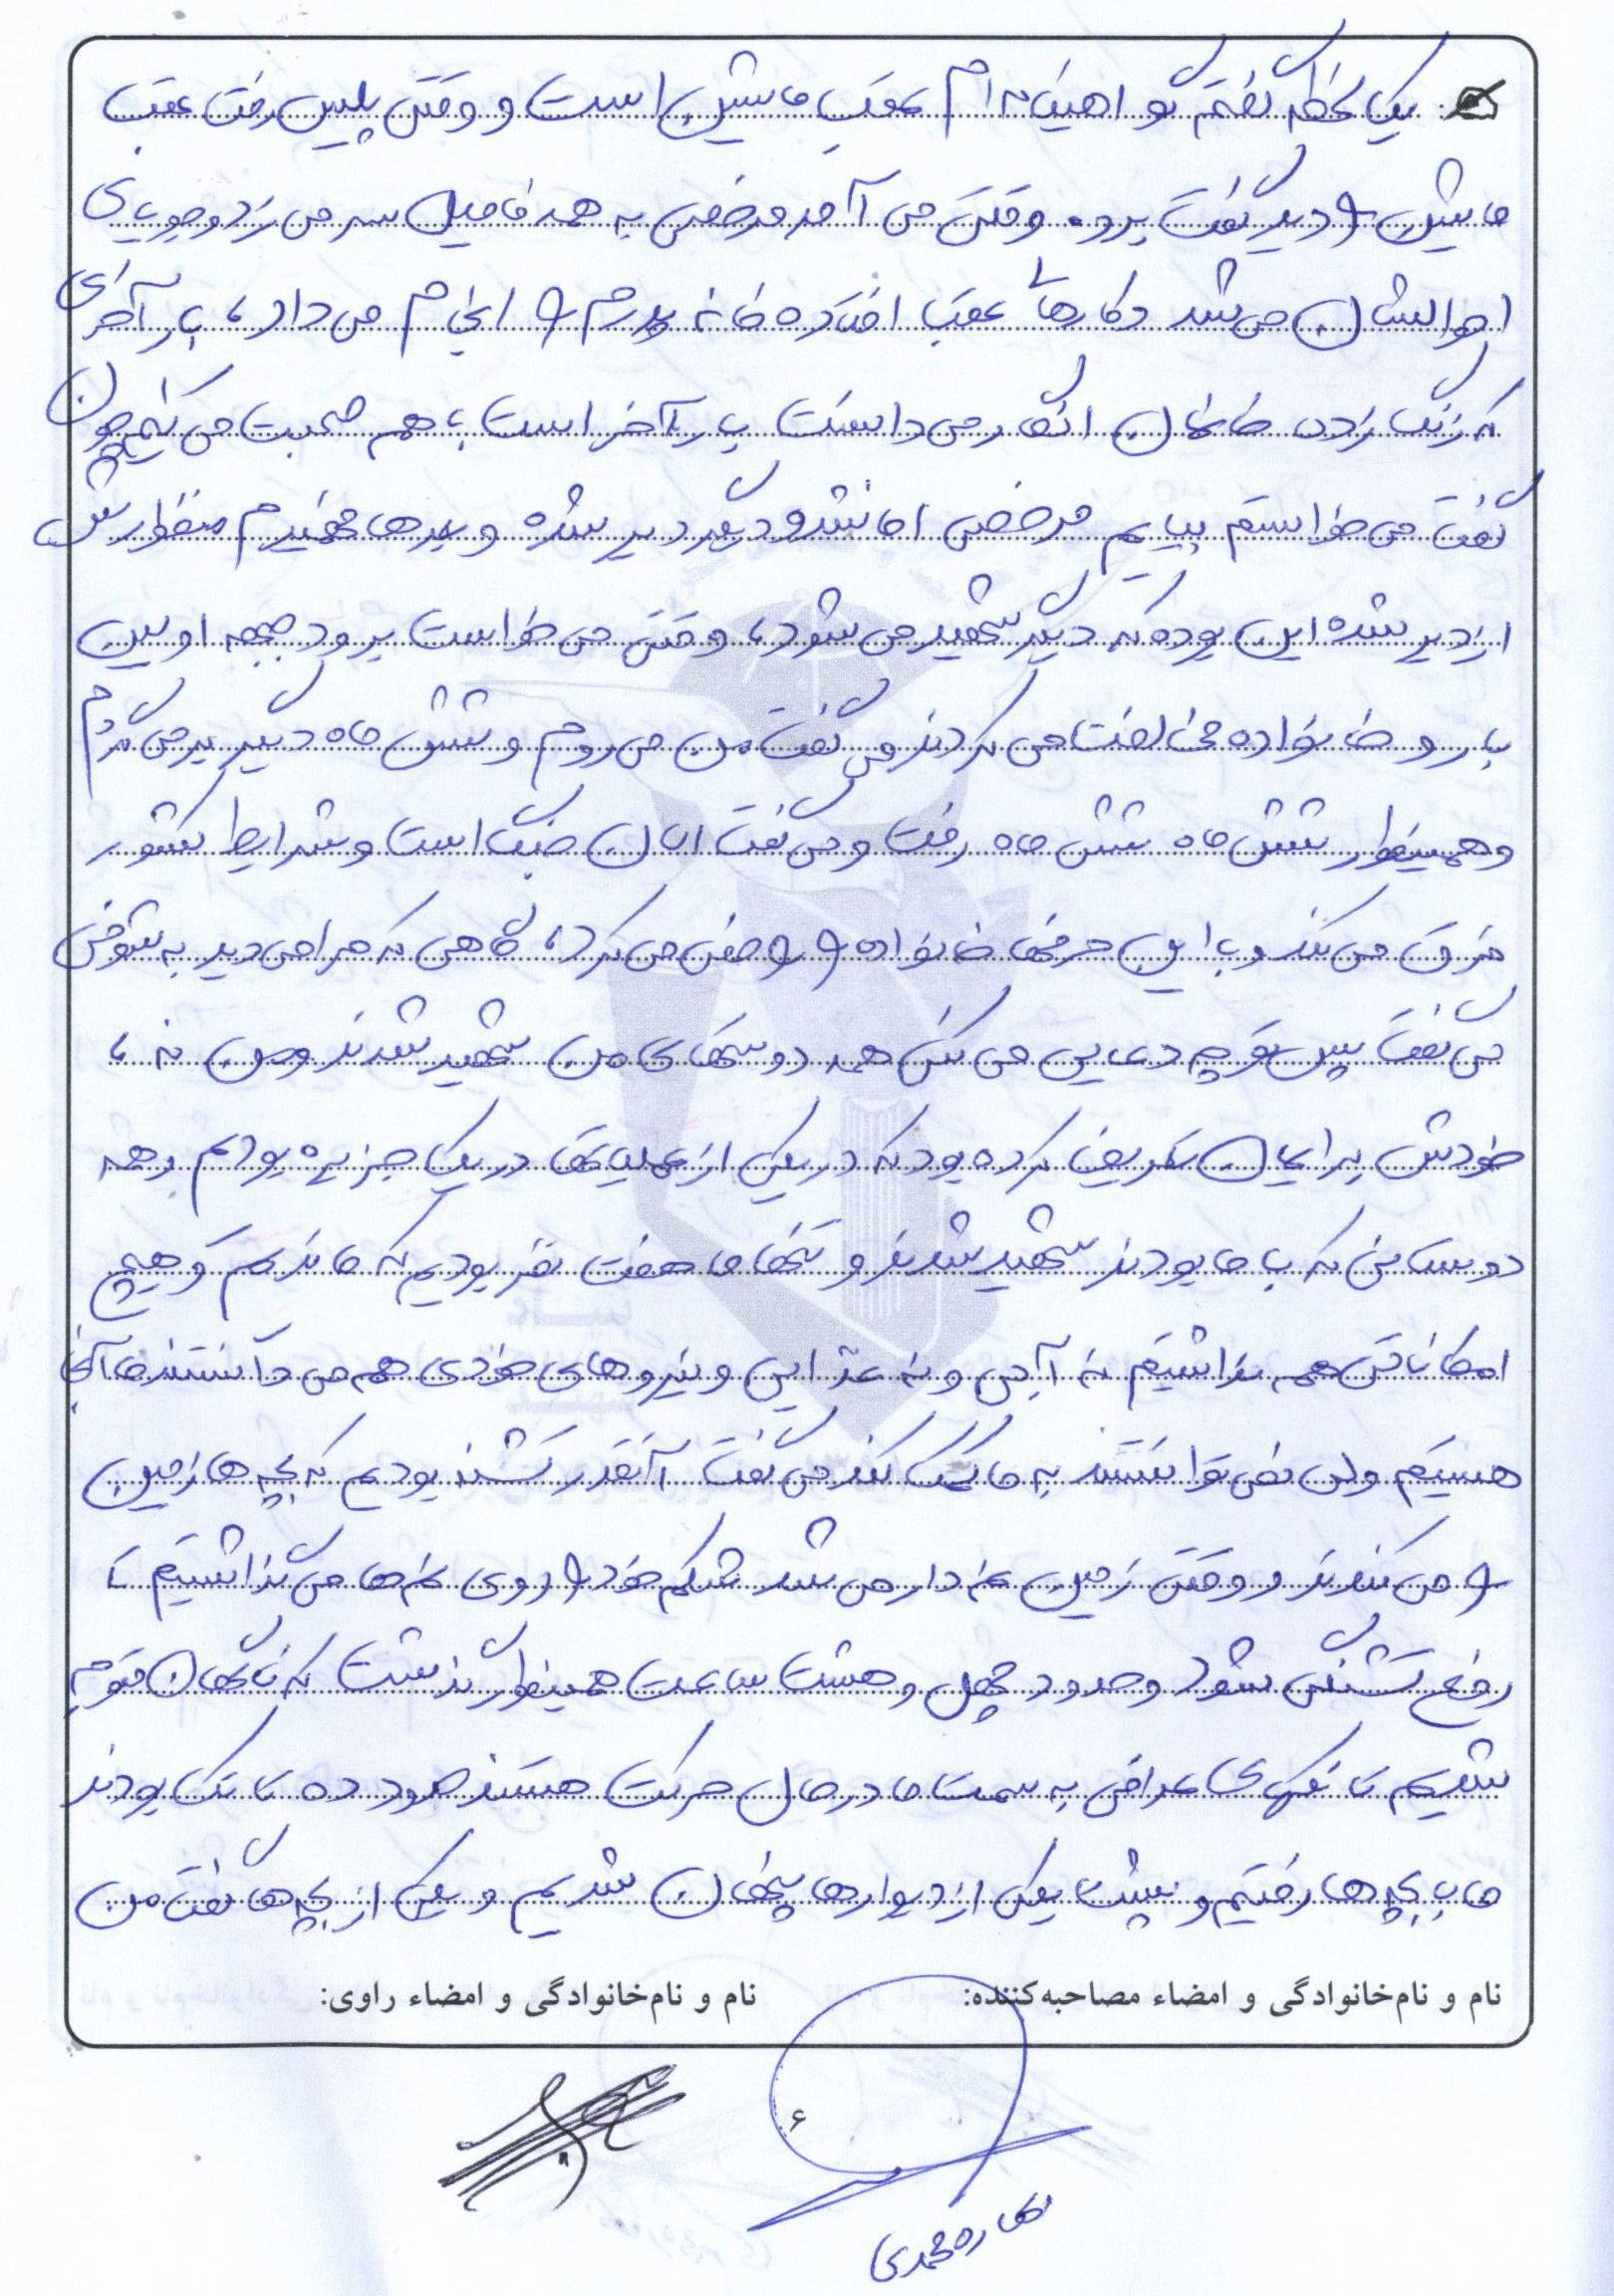 یک لحظه گفتم تو اهینامه ام عقب ماشین است و وقتی پلیس رفت عقب
ماشین را دید گفت برو. وقتی می آمد مرخصی به همه فامیل سر می زد و جویای
احوالشان می شد و کارهای عقب افتاده خانه پدرم را انجام می داد، بار آخری
که زنگ زدن خانمان انگار می دانست بار آخر است با هم صحبت می کنیم چون
گفت می خواستم بیایم مرخصی اما نشد و دیگر دیر شده و بعدها فهمیدم منظورش
از دیر شده این بوده که دیگر شهید می شود، وقتی می خواست برود جبهه اولین
بار و خانواده مخالفت می کردند و می گفت من می روم و شش ماه دیگر برمی گردم
و همینطور شش ماه شش ماه رفت و می گفت الان جنگ است و شرایط کشور
فرق می کند و با این حرفها خانواده را راضی می کرد، گاهی که مرا می دید به شوخی
می گفت پس تو چه دعایی می کنی همه دوستهای من شهید شدند و من نه،
خودش برایمان تعریف کرده بود که در یکی از عملیاتها در یک جزیره بودیم و همه
دوستانی که با ما بودند شهید شدند و تنها ما هفت نفر بودیم که ماندیم و هیچ
امکاناتی هم نداشتیم نه آبی و نه غذایی و نیروهای خودی هم می دانستند ما آنجا
هستیم ولی نمی توانستند به ما کمک کنند می گفت آنقدر تشنه بودیم که بچه ها زمین
را می کندند و وقتی زمین نم دار می شد شکم خود را روی نم ها می گذاشتیم تا
رفع تشنگی شود و حدود چهل و هشت ساعت همینطور گذشت که ناگهان متوجه
شدیم تانکهای عراقی به سمت ما در حال حرکت هستند حدود ده تا تانک بودند
ما با بچه ها رفتیم و پشت یکی از دیوارها پنهان شدیم و یکی از بچه ها گفت من
نام و نام‌خانوادگی و امضاء مصاحبه‌کننده: نام و نام‌خانوادگی و امضاء راوی:
۶
محمدی